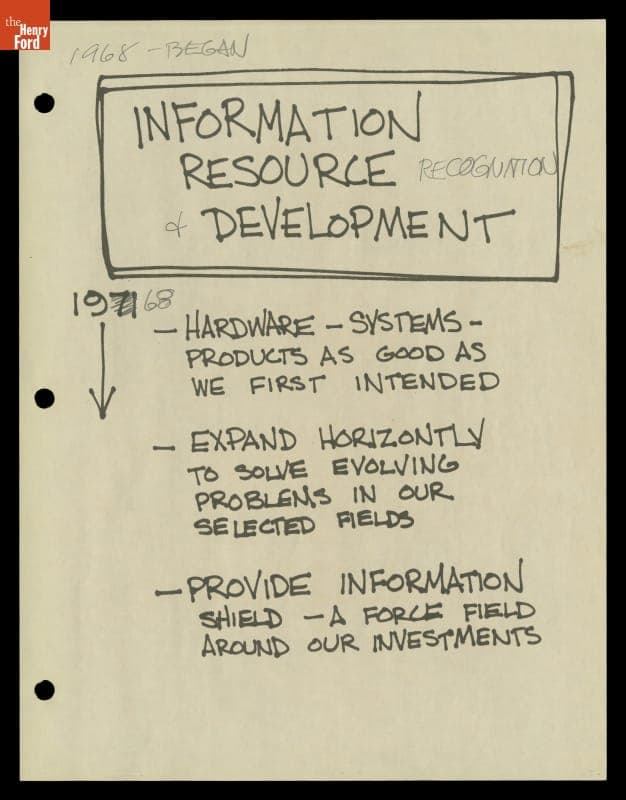 the
Henry
Ford
1968 - BEGAN
INFORMATION
RESOURCE RECOGNITION
& DEVELOPMENT
1971 68
- HARDWARE - SYSTEMS -
PRODUCTS AS GOOD AS
WE FIRST INTENDED
- EXPAND HORIZONTLY
TO SOLVE EVOLVING
PROBLEMS IN OUR
SELECTED FIELDS
- PROVIDE INFORMATION
SHIELD - A FORCE FIELD
AROUND OUR INVESTMENTS